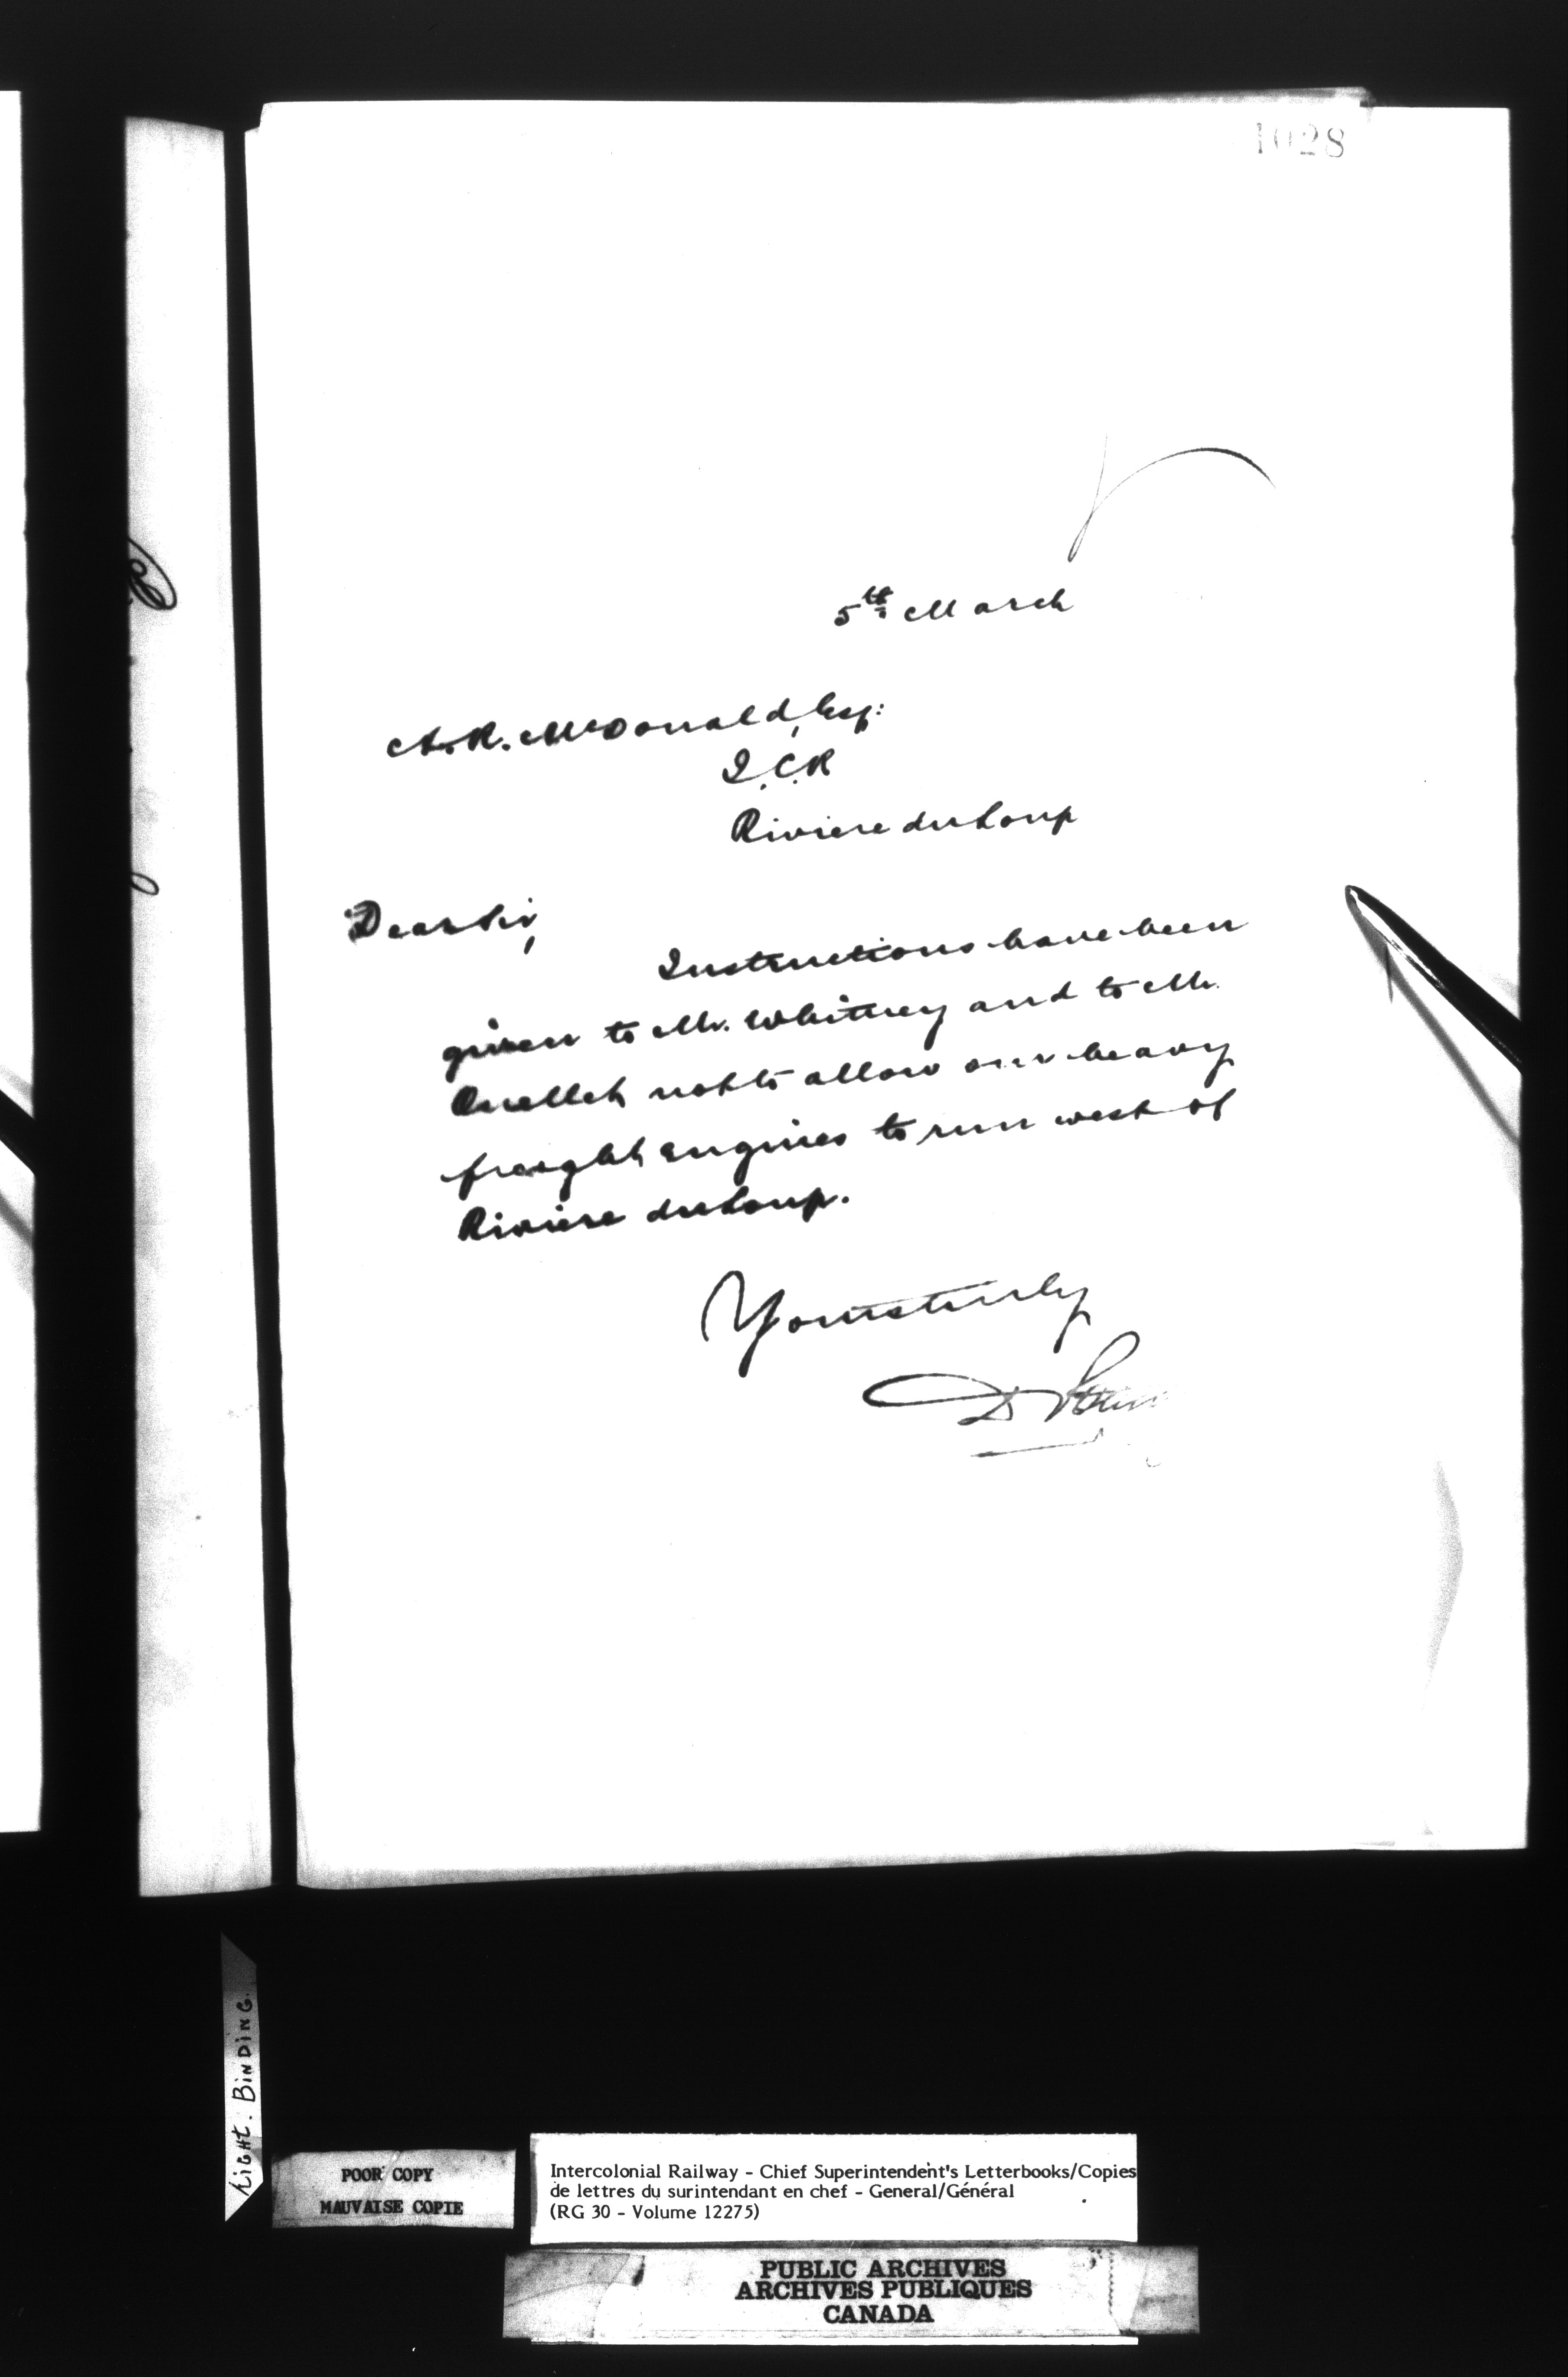 1028
5th March
A.R. McDonald, Esq:
I.C.R
Riviere du Loup
Dear Sir,
Instructions have been
given to Mr. Whitney and to Mr.
Ouellet not to allow our heavy
freight engines to run west of
Riviere du Loup.
Yours truly
D
Tight. BINDING.
POOR COPY
MAUVAISE COPIE
Intercolonial Railway - Chief Superintendent's Letterbooks/Copies
de lettres du surintendant en chef - General/Général
(RG 30 - Volume 12275)
PUBLIC ARCHIVES
ARCHIVES PUBLIQUES
CANADA